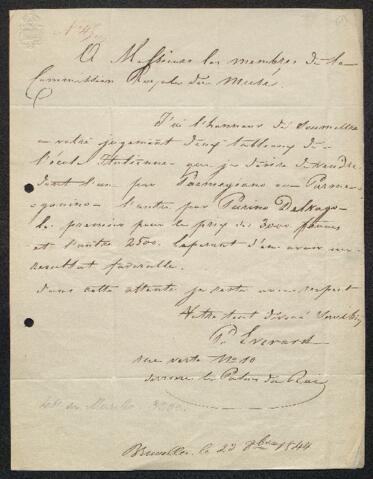 A Messieurs les membres de la
Commission Royale du Musée.
J'ai l'honneur de soumettre
a votre jugement deux tableaux de
l'école Italienne que je désire de vendre
dont l'un par Parmegiano ou Parme-
gianino l'autre par Perino Delvago
le premier pour le prix de 3000 francs
et l'autre 2500. esperant d'en avoir un
resultat favorable.
dans cette attente je reste avec respect
Votre tout dévoué
P. Everard
rue verte No 10
derriere le Palais du Roi
Bruxelles le 23 1844